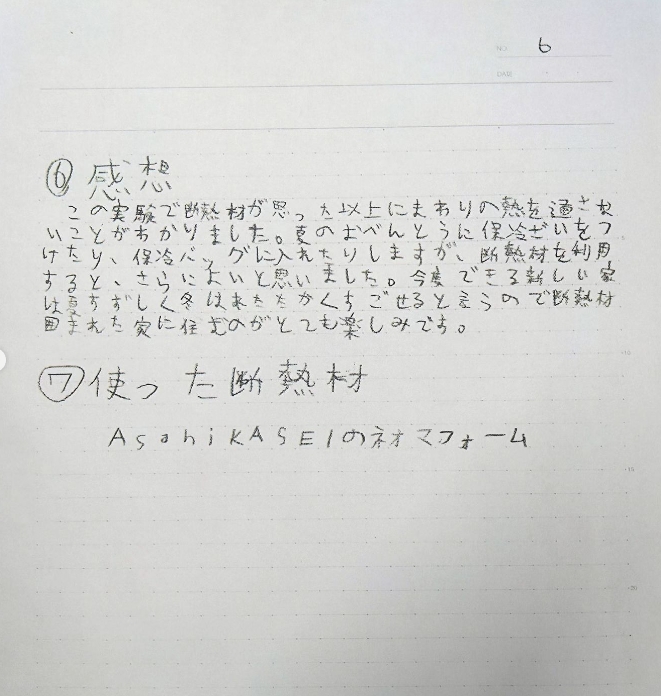 NO. 6
DATE
⑥ 感想
この実験で断熱材が思った以上にまわりの熱を通さな
いことがわかりました。夏のおべんとうに保冷ざいをつ
けたり、保冷バッグに入れたりしますが、断熱材を利用
すると、さらによいと思いました。今度できる新しい家
は夏すずしく冬はあたたかくすごせると言うので断熱材
囲まれた家に住むのがとても楽しみです。
⑦ 使った断熱材
AsahiKASEIのネオマフォーム